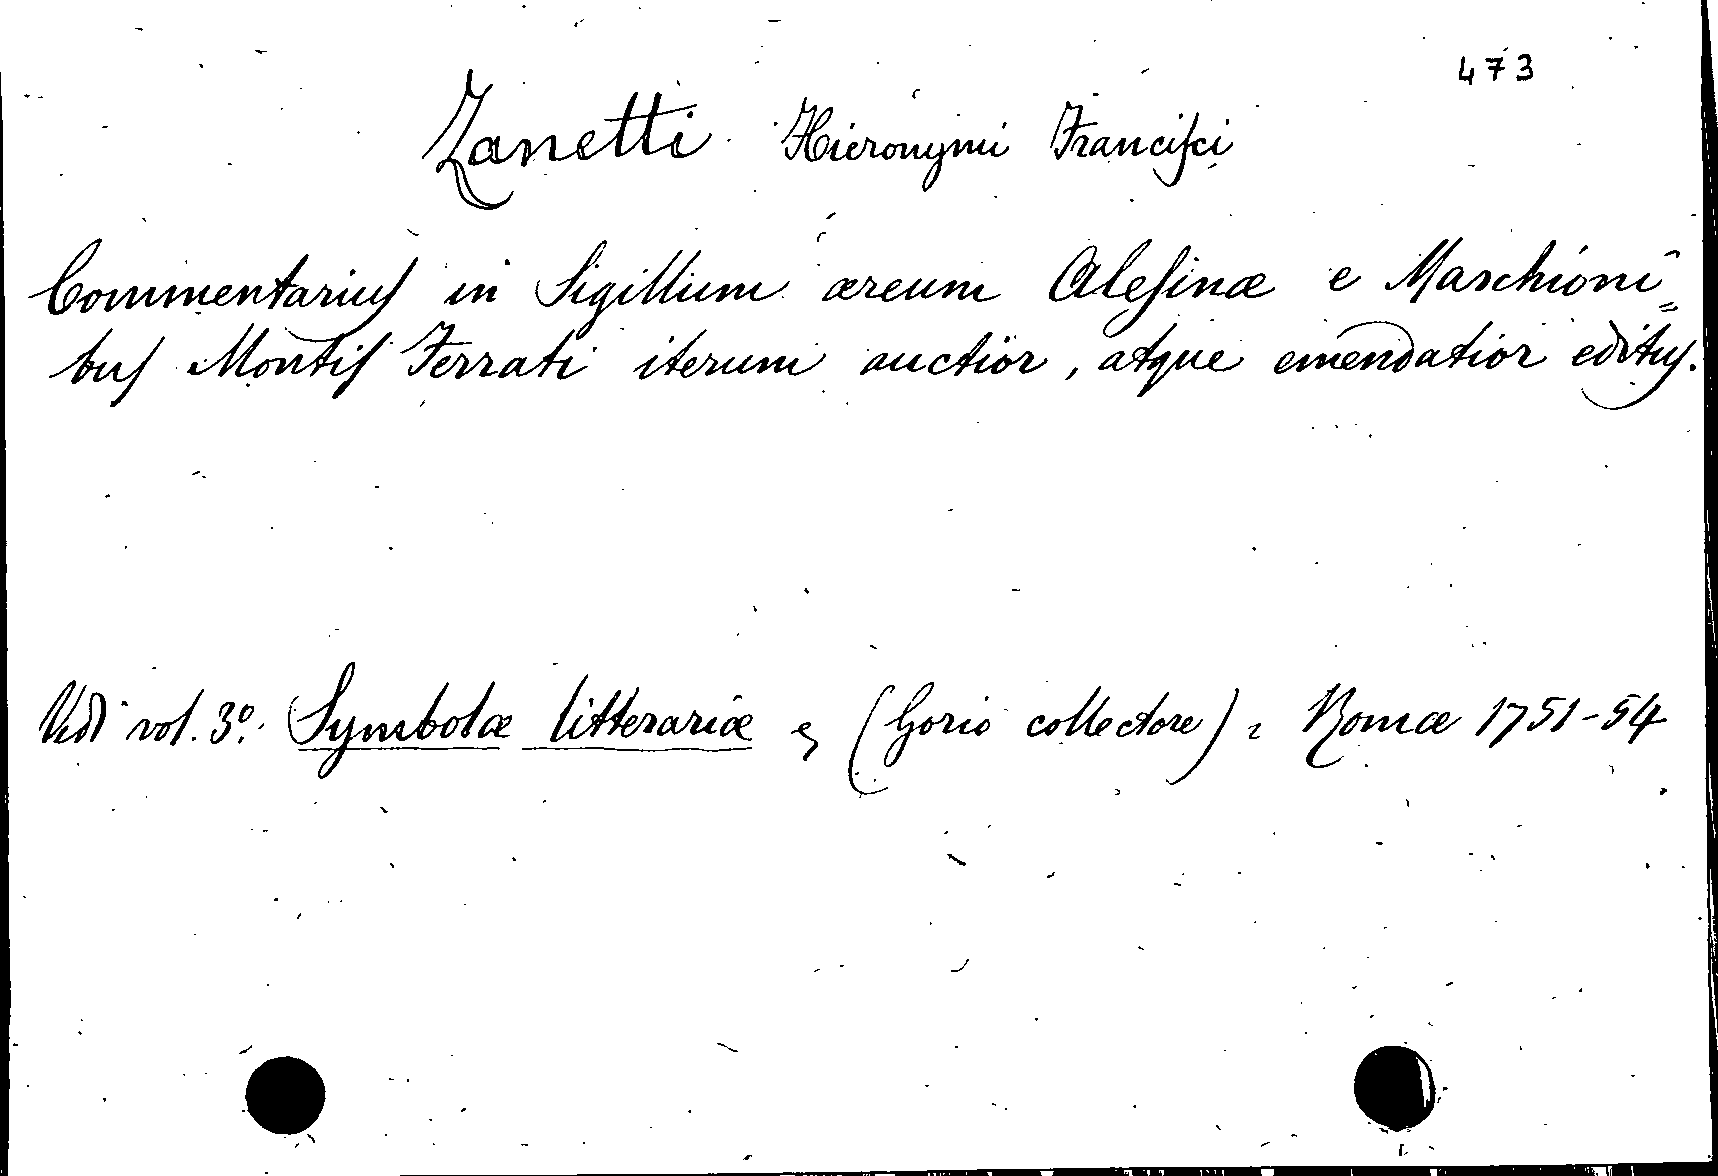 473
Zanetti Hieronymi Franciſci
Commentariuſ in Sigillium æreum Aleſinæ e Marchioni=
buſ Montiſ Ferrati iterum auctior, atque emendatior edituſ.
Vedi vol. 3º. Symbolæ litterariæ (Gorio collectore) = Romæ 1751-54